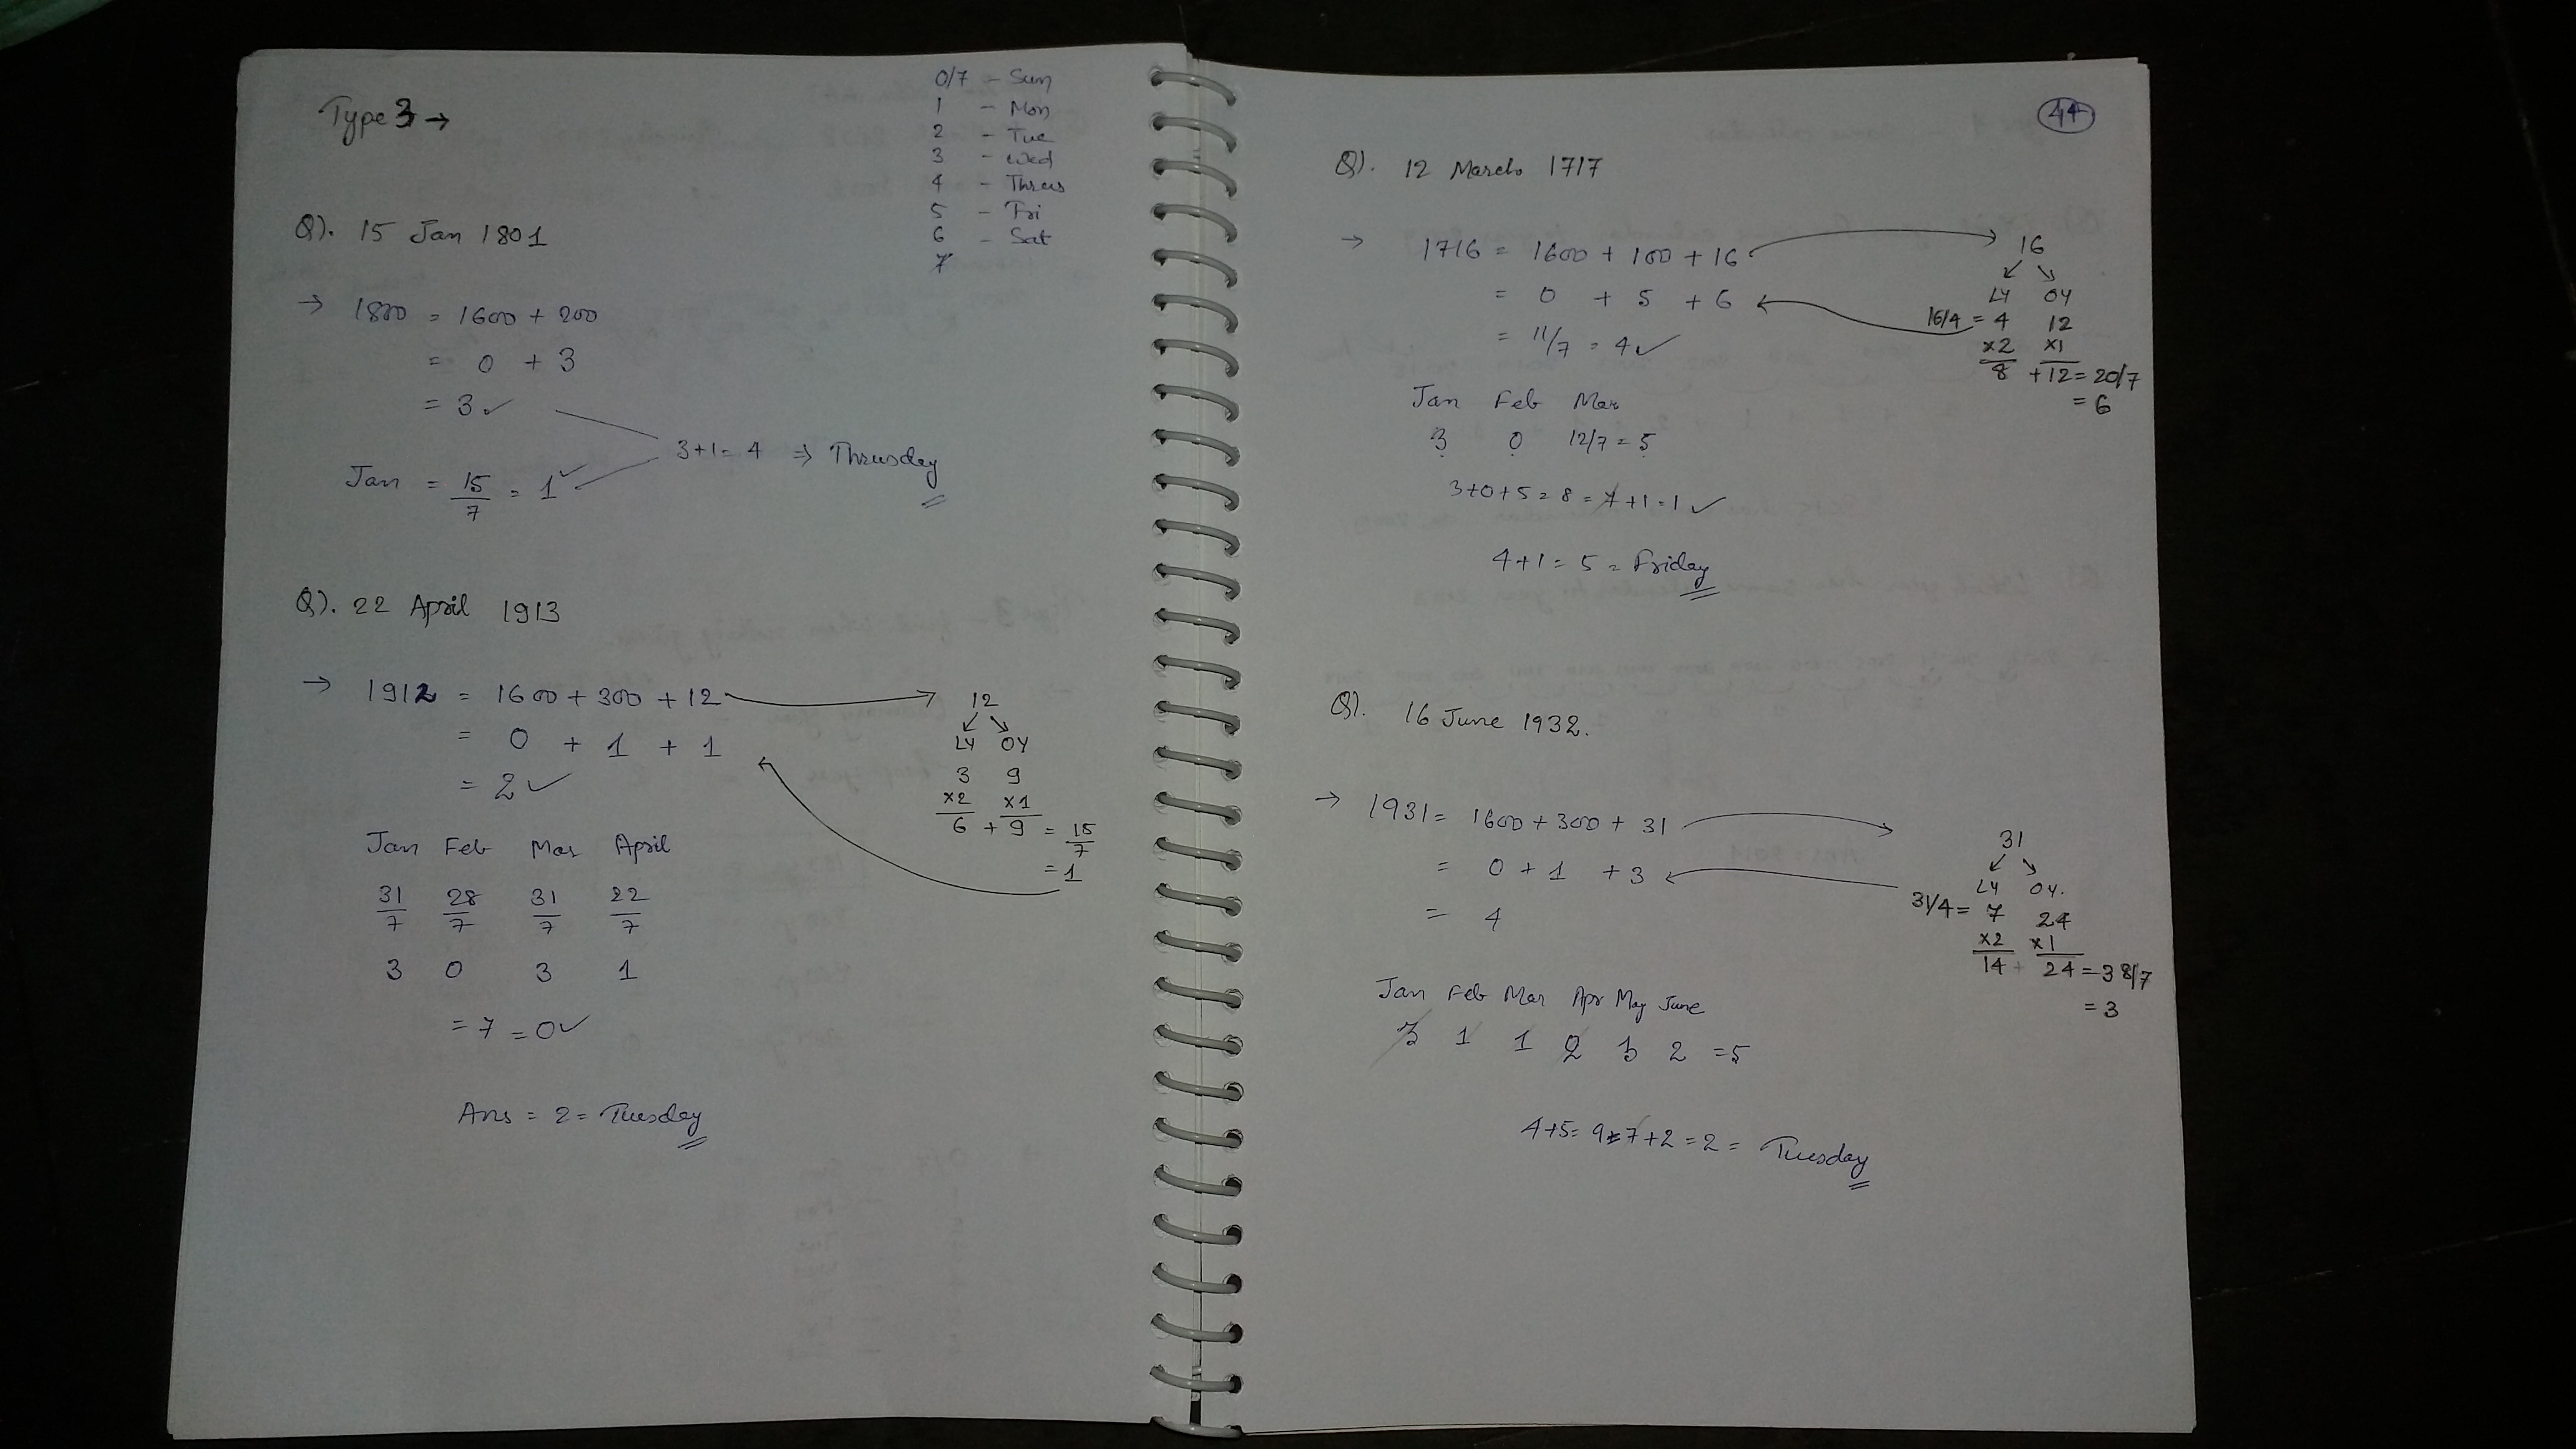 Type 3 →
0/7 - Sun
1 - Mon
2 - Tue
3 - Wed
4 - Thrus
5 - Fri
6 - Sat
7
Q). 15 Jan 1801
→ 1800 = 1600 + 200
= 0 + 3
= 3 ✓
3+1 = 4 ⇒ Thrusday
Jan = 15/7 = 1 ✓
Q). 22 April 1913
→ 1912 = 1600 + 300 + 12
= 0 + 1 + 1
= 2 ✓
12
↙ ↘
LY OY
3 9
×2 ×1
6 + 9 = 15/7
= 1
Jan Feb Mar April
31/7 28/7 31/7 22/7
3 0 3 1
= 7 = 0 ✓
Ans = 2 = Tuesday
44
Q). 12 March 1717
→ 1716 = 1600 + 100 + 16
= 0 + 5 + 6
= 11/7 = 4 ✓
16
↙ ↘
LY OY
16/4 = 4 12
×2 ×1
8 + 12 = 20/7
= 6
Jan Feb Mar
3 0 12/7 = 5
3+0+5 = 8 = 7+1 = 1 ✓
4+1 = 5 = Friday
Q). 16 June 1932.
→ 1931 = 1600 + 300 + 31
= 0 + 1 + 3
= 4
31
↙ ↘
LY OY.
31/4 = 7 24
×2 ×1
14 + 24 = 38/7
= 3
Jan Feb Mar Apr May June
3 1 1 2 2 = 5
4+5 = 9 = 7+2 = 2 = Tuesday